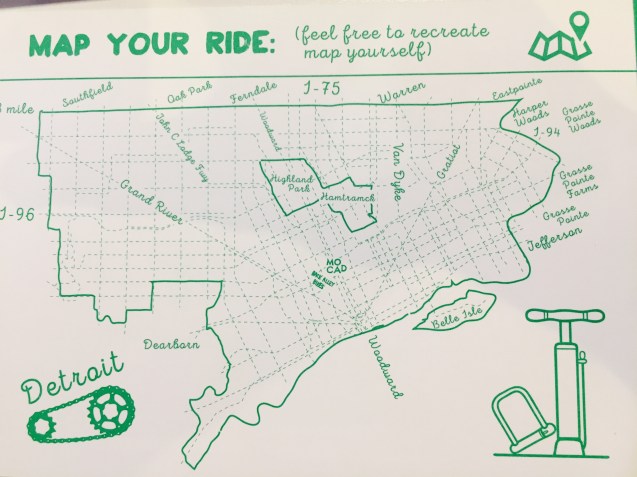 MAP YOUR RIDE:
(feel free to recreate
map yourself)
Southfield
Oak Park
Ferndale
I-75
Warren
Eastpointe
8 mile
Harper
Woods
Grosse
Pointe
Woods
I-94
John C Lodge Fwy
Woodward
Van Dyke
Gratiot
Highland
Park
Hamtramck
Grosse
Pointe
Farms
Grand River
I-96
Grosse
Pointe
Jefferson
MO
CAD
Belle Isle
Dearborn
Woodward
Detroit